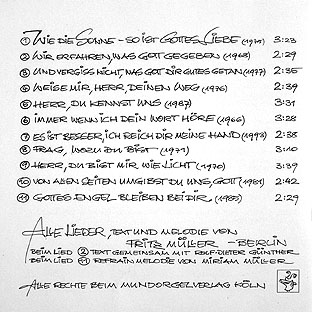 ① WIE DIE SONNE - SO IST GOTTES LIEBE (1974) 3:23
② WIR ERFAHREN, WAS GOTT GEGEBEN (1968) 2:29
③ UND VERGISS NICHT, WAS GOT DIR GUTES GETAN (1977) 2:35
④ WEISE MIR, HERR, DEINEN WEG (1976) 2:39
⑤ HERR, DU KENNST UNS (1987) 3:31
⑥ IMMER WENN ICH DEIN WORT HÖRE (1966) 3:28
⑦ ES IST BESSER, ICH REICH DIR MEINE HAND (1993) 2:38
⑧ FRAG, WOZU DU BIST (1971) 3:10
⑨ HERR, DU BIST MIR WIE LICHT (1970) 3:39
⑩ VON ALLEN SEITEN UMGIBST DU UNS, GOTT (1981) 2:42
⑪ GOTTES ENGEL BLEIBEN BEI DIR (1989) 2:29
ALLE LIEDER, TEXT UND MELODIE VON
FRITZ MÜLLER - BERLIN
BEIM LIED ② TEXT GEMEINSAM MIT ROLF-DIETER GÜNTHER
BEIM LIED ⑪ REFRAIN MELODIE VON MIRIAM MÜLLER
ALLE RECHTE BEIM MUNDORGELVERLAG KÖLN